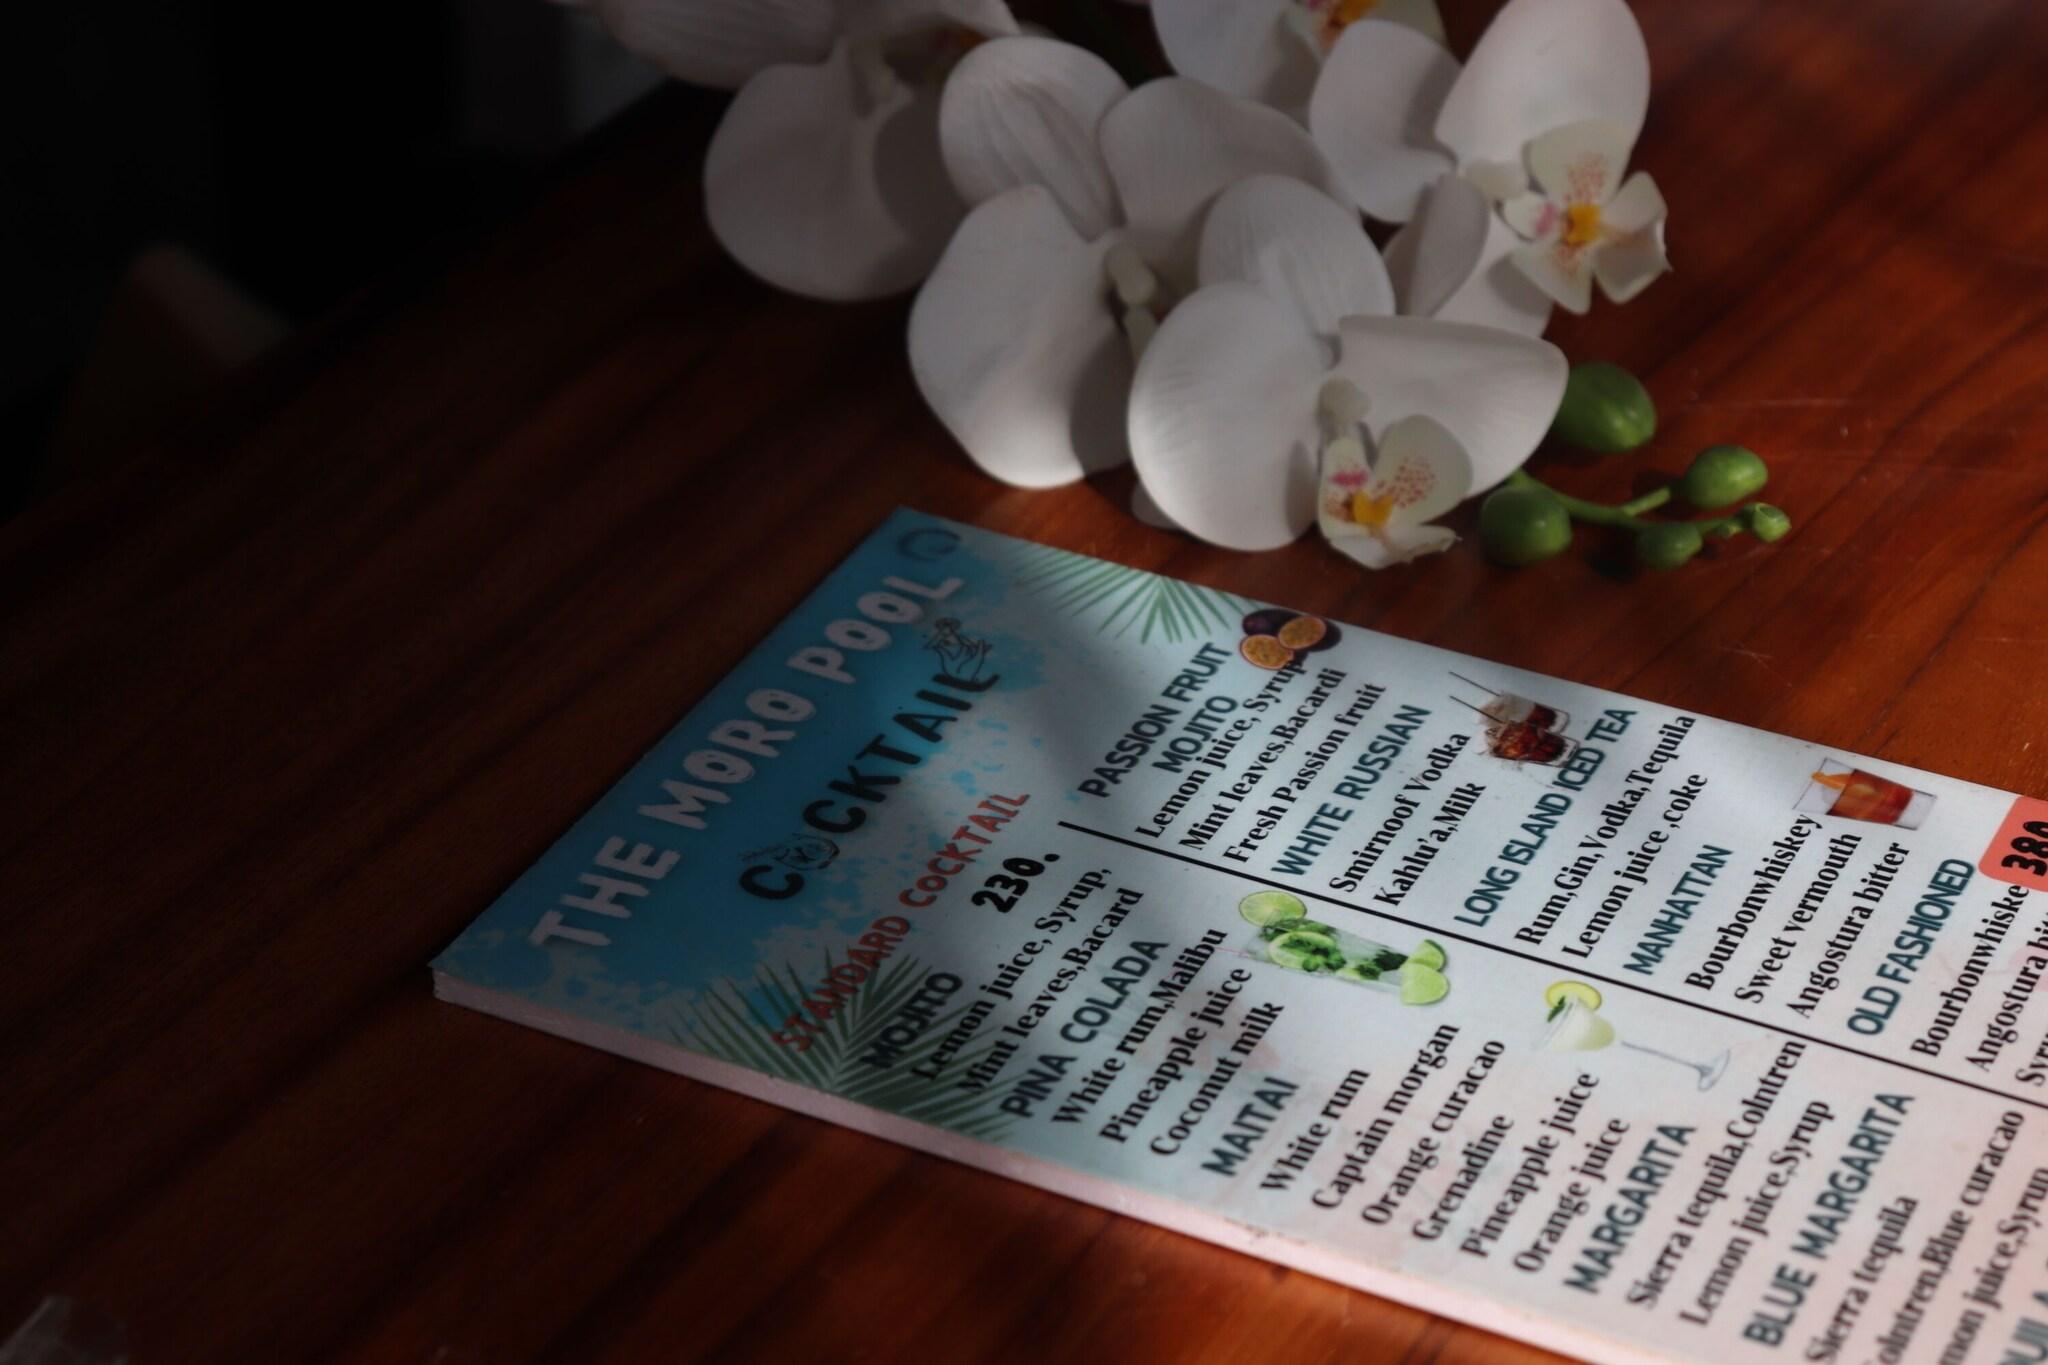 THE MORO POOL
COCKTAIL
STANDARD COCKTAIL
230.
MOJITO
Lemon juice, Syrup,
Mint leaves,Bacard
PINA COLADA
White rum,Malibu
Pineapple juice
Coconut milk
MAITAI
White rum
Captain morgan
Orange curacao
Grenadine
Pineapple juice
Orange juice
MARGARITA
Sierra tequila,Colntren
Lemon juice,Syrup
BLUE MARGARITA
Sierra tequila
Colntren,Blue curacao
PASSION FRUIT
MOJITO
Lemon juice, Syrup
Mint leaves,Bacardi
Fresh Passion fruit
WHITE RUSSIAN
Smirnoof Vodka
Kahlu'a,Milk
LONG ISLAND ICED TEA
Rum,Gin,Vodka,Tequila
Lemon juice ,coke
MANHATTAN
Bourbonwhiskey
Sweet vermouth
Angostura bitter
OLD FASHIONED
Bourbonwhiske
Angostura
380